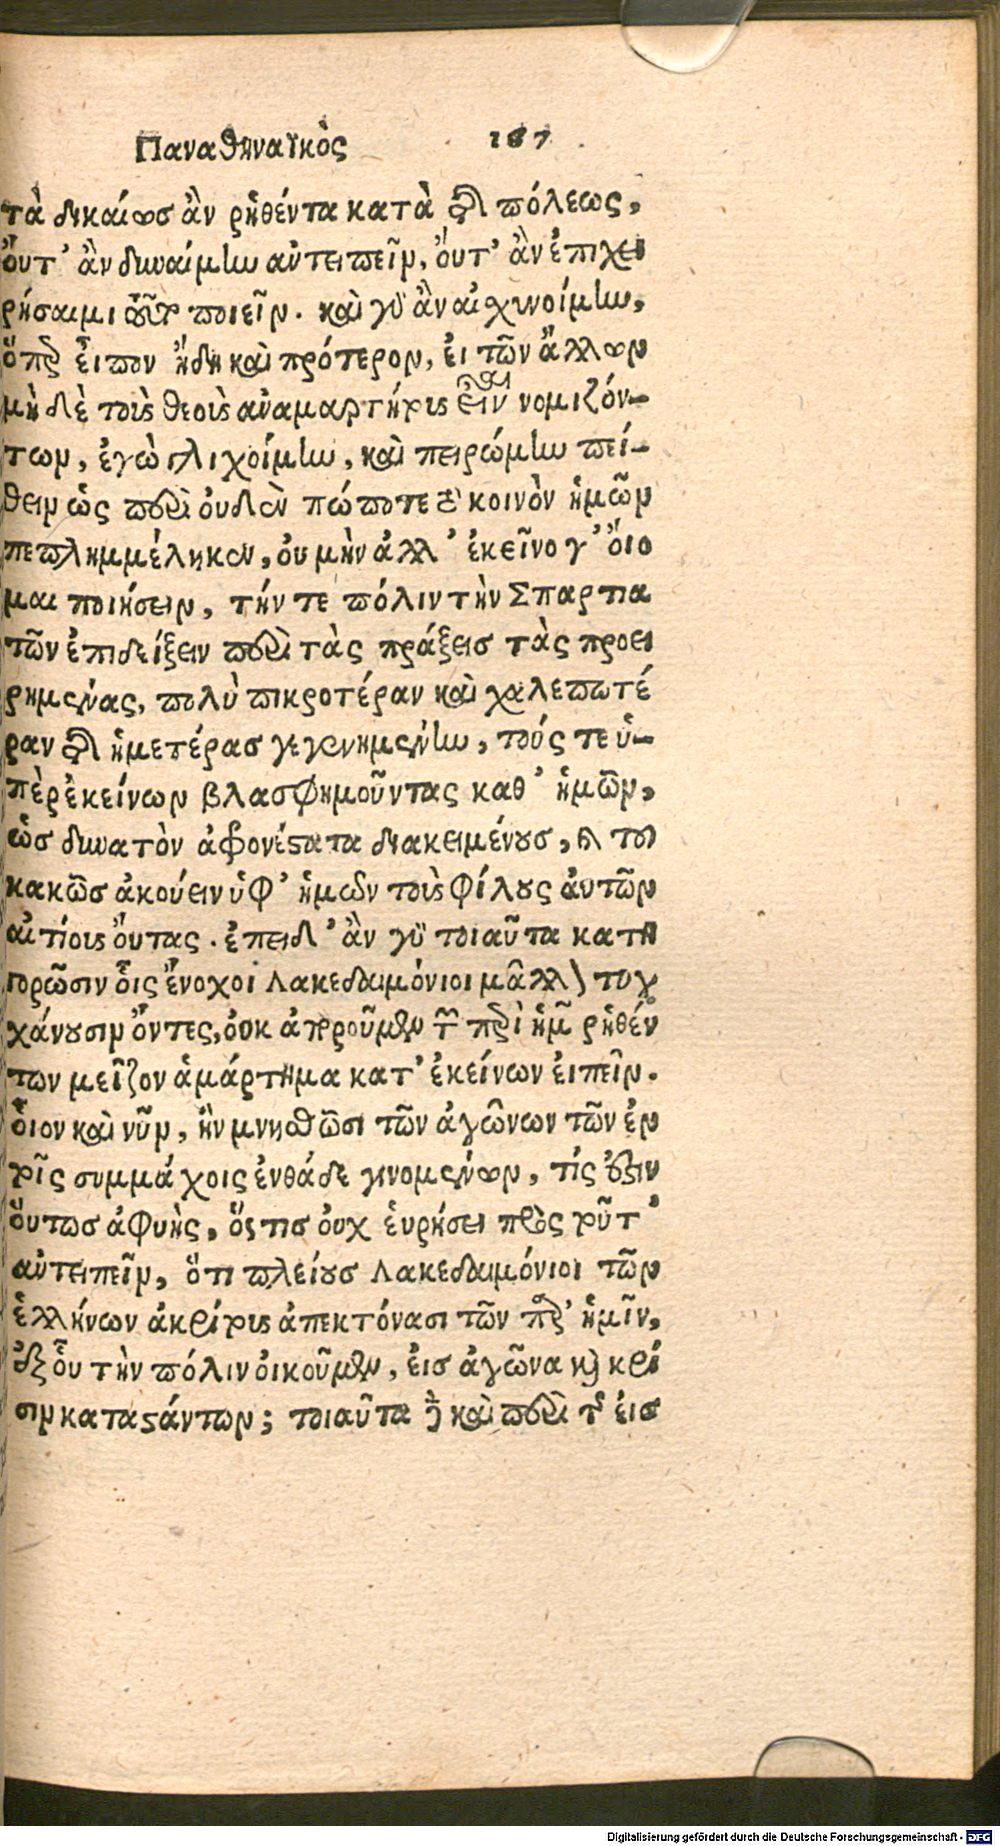 Παναθηναϊκὸς 167
τὰ δικαίωσ ἂν ῥηθέντα κατὰ τῆς πόλεως,
οὔτ’ ἂν δυναίμην ἀντειπεῖν, οὔτ’ ἂν ἐπιχει
ρήσαιμι τοῦτο ποιεῖν. καὶ γὰρ ἂν αἰσχυνοίμην,
ὅπερ εἶπον ἤδη καὶ πρότερον, εἰ τῶν ἄλλων
μηδὲ τοὺς θεοὺς ἀναμαρτήτους εἶναι νομιζόν-
των, ἐγὼ γλιχοίμην, καὶ πειρώμην πεί-
θειν ὡς περὶ οὐδὲν πώποτε τὸ κοινὸν ἡμῶν
πεπλημμέληκεν, οὐ μὴν ἀλλ’ ἐκεῖνο γ’ οἴο
μαι ποιήσειν, τήν τε πόλιν τὴν Σπαρτια
τῶν ἐπιδείξειν περὶ τὰς πράξεισ τὰς προει
ρημένας, πολὺ πικροτέραν καὶ χαλεπωτέ
ραν τῆς ἡμετέρασ γεγενημένην, τούς τε ὑ-
πὲρ ἐκείνων βλασφημοῦντας καθ’ ἡμῶν,
ὡσ δυνατὸν ἀφρονέστατα διακειμένουσ, καὶ τοῦ
κακῶσ ἀκούειν ὑφ’ ἡμῶν τοὺς φίλους αὐτῶν
αἰτίους ὄντας. ἐπειδ’ ἂν γὰρ τοιαῦτα κατη
γορῶσιν οἷς ἔνοχοι Λακεδαιμόνιοι μᾶλλον τυγ
χάνουσιν ὄντες, οὐκ ἀποροῦμεν τοῦ περὶ ἡμῶν ῥηθέν
των μεῖζον ἁμάρτημα κατ’ ἐκείνων εἰπεῖν.
οἷον καὶ νῦν, ἢν μνησθῶσι τῶν ἀγώνων τῶν ἐν
τοῖς συμμάχοις ἐνθάδε γινομένων, τίς ἔστιν
οὕτωσ ἀφυὴς, ὅς τισ οὐχ εὑρήσει πρὸς τοῦτ’
ἀντειπεῖν, ὅτι πλείουσ Λακεδαιμόνιοι τῶν
ἑλλήνων ἀκρίτους ἀπεκτόνασι τῶν παρ’ ἡμῖν,
ἐξ οὗ τὴν πόλιν οἰκοῦμεν, εἰσ ἀγῶνα καὶ κρί
σιν καταστάντων; τοιαῦτα δὲ καὶ περὶ τῆς εἰσ
Digitalisierung gefördert durch die Deutsche Forschungsgemeinschaft - DFG